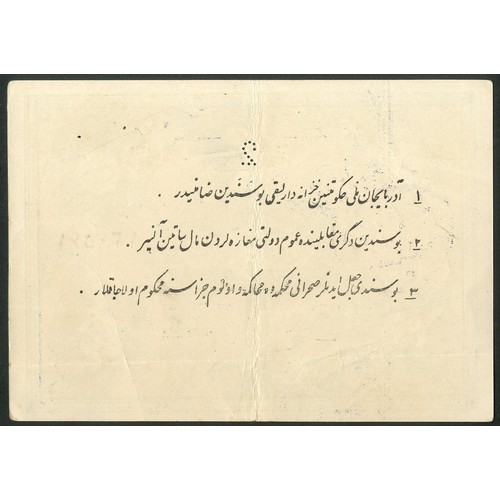 ۱ آذربایجان ملی حکومتینین خزانه دارلیقی بو سندین ضامنیدر .
۲- بو سندین دگری مقابلینده عموم دولتی مغازه لردن مال ساتین آلنیر .
۳- بو سندی جعل ایدنلر صحرائی محکمه ده محاکمه و اؤلوم جزاسنه محکوم اولاجاقلار .